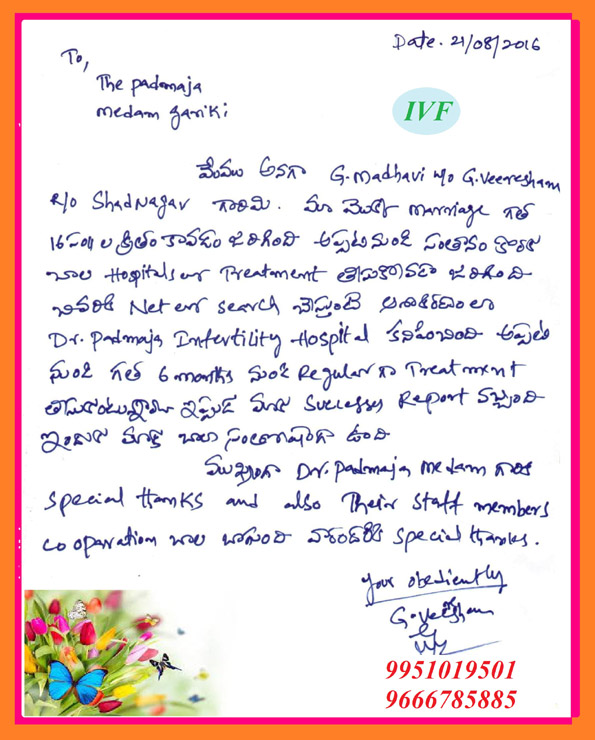 Date. 21/08/2016
To,
The Padmaja
Medam gariki
IVF
మేము అనగా G. Madhavi w/o G. Veeresham
R/o ShadNagar మా మొక్క marriage గత
16 సం॥ల క్రితం కావడం జరిగింది అప్పటినుండి సంతానం కొరకు
చాల Hospitals Treatment తీసుకోవడం జరిగింది
చివరికి Net search చేస్తుంటే
Dr. Padmaja Infertility Hospital కనిపించింది అప్పటి
నుండి గత 6 months నుండి Regular గా Treatment
తీసుకుంటున్నాము ఇప్పుడే మాకు Success Report వచ్చింది
ఇందుకు మాకు చాల సంతోషంగా ఉంది
ముఖ్యంగా Dr. Padmaja Medam గారికి
special thanks and also Their staff members
co operation చాల బాగుంది వారందరికి special thanks.
your obediently
G. Veeresham
9951019501
9666785885